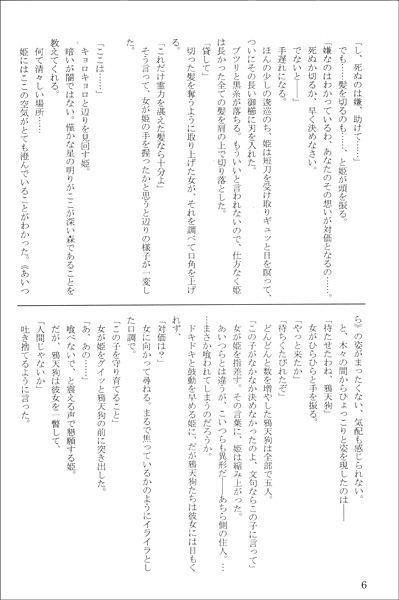 「し、死ぬのは嫌、助けて…！」
でも……髪を切るのも……、と姫が頭を振る。
「嫌なのはわかっているわ、あなたのその想いが対価となるの……。
死ぬか切るか、早く決めなさい。
でないと――」
手遅れになる。
ほんの少しの逡巡のち、姫は短刀を受け取りギュッと目を瞑って、
ついにその長い御櫛に刃を入れた。
ブツリと黒糸が落ちる。もういいと言われないので、仕方なく姫
は長かった全ての髪を肩の上で切り落とした。
「貸して」
切った髪を奪うように取り上げた女が、それを調べて口角を上げ
る。
「これだけ霊力を湛えた髪なら十分よ」
そう言って、女が姫の手を握ったかと思うと辺りの様子が一変し
た。
「ここは……」
キョロキョロと辺りを見回す姫。
暗いが闇ではない。僅かな星の明りがここが深い森であることを
教えてくれる。
何て清々しい場所……
姫にはここの空気がとても澄んでいることがわかった。《あいつ
ら》の姿がまったくない、気配も感じられない。
と、木々の間からひょっこりと姿を現したのは――
「待たせたわね、鴉天狗」
女がひらひらと手を振る。
「やっと来たか」
「待ちくたびれたぞ」
どんどんと数を増やした鴉天狗は全部で五人。
「この子がなかなか決めなかったのよ、文句ならこの子に言って」
女が姫を指差す。その言葉に、姫は縮み上がった。
あいつらとは違うが、こいつらも異形だ――あちら側の住人。…
…まさか喰われてしまうのだろうか。
ドキドキと鼓動を早める姫に、だが鴉天狗たちは彼女には目もく
れず、
「対価は？」
女に向かって尋ねる。まるで焦っているかのようにイライラとし
た口調。
「この子を守り育てること」
女が姫をグイッと鴉天狗の前に突き出した。
「あ、あの……」
喰べないで、と震える声で懇願する姫。
だが、鴉天狗は彼女を一瞥して、
「人間じゃないか」
吐き捨てるように言った。
6